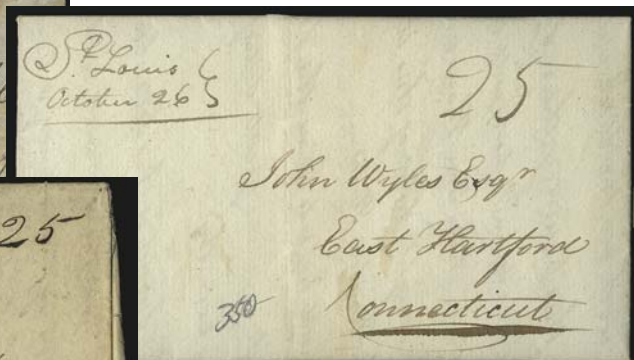 St Louis
October 26
25
John Wyles Esqr
East Hartford
Connecticut
350
25